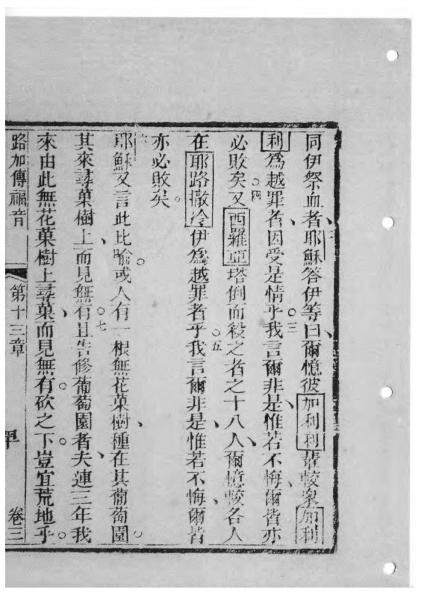 同伊祭血者耶穌答伊等曰爾憶彼加利利輩較衆加利
利爲越罪者因受是情乎我言爾非是惟若不悔爾皆亦
必敗矣又西羅亞塔倒而殺之者之十八人爾憶較各人
在耶路撒冷伊爲越罪者乎我言爾非是惟若不悔爾皆
亦必敗矣
耶穌又言此比喻或人有一根無花菓樹種在其葡萄園
其來尋菓樹上而見無有且告修葡萄園者夫連三年我
來由此無花菓樹上尋菓而見無有砍之下豈宜荒地乎
路加傳福音 第十三章 卷三